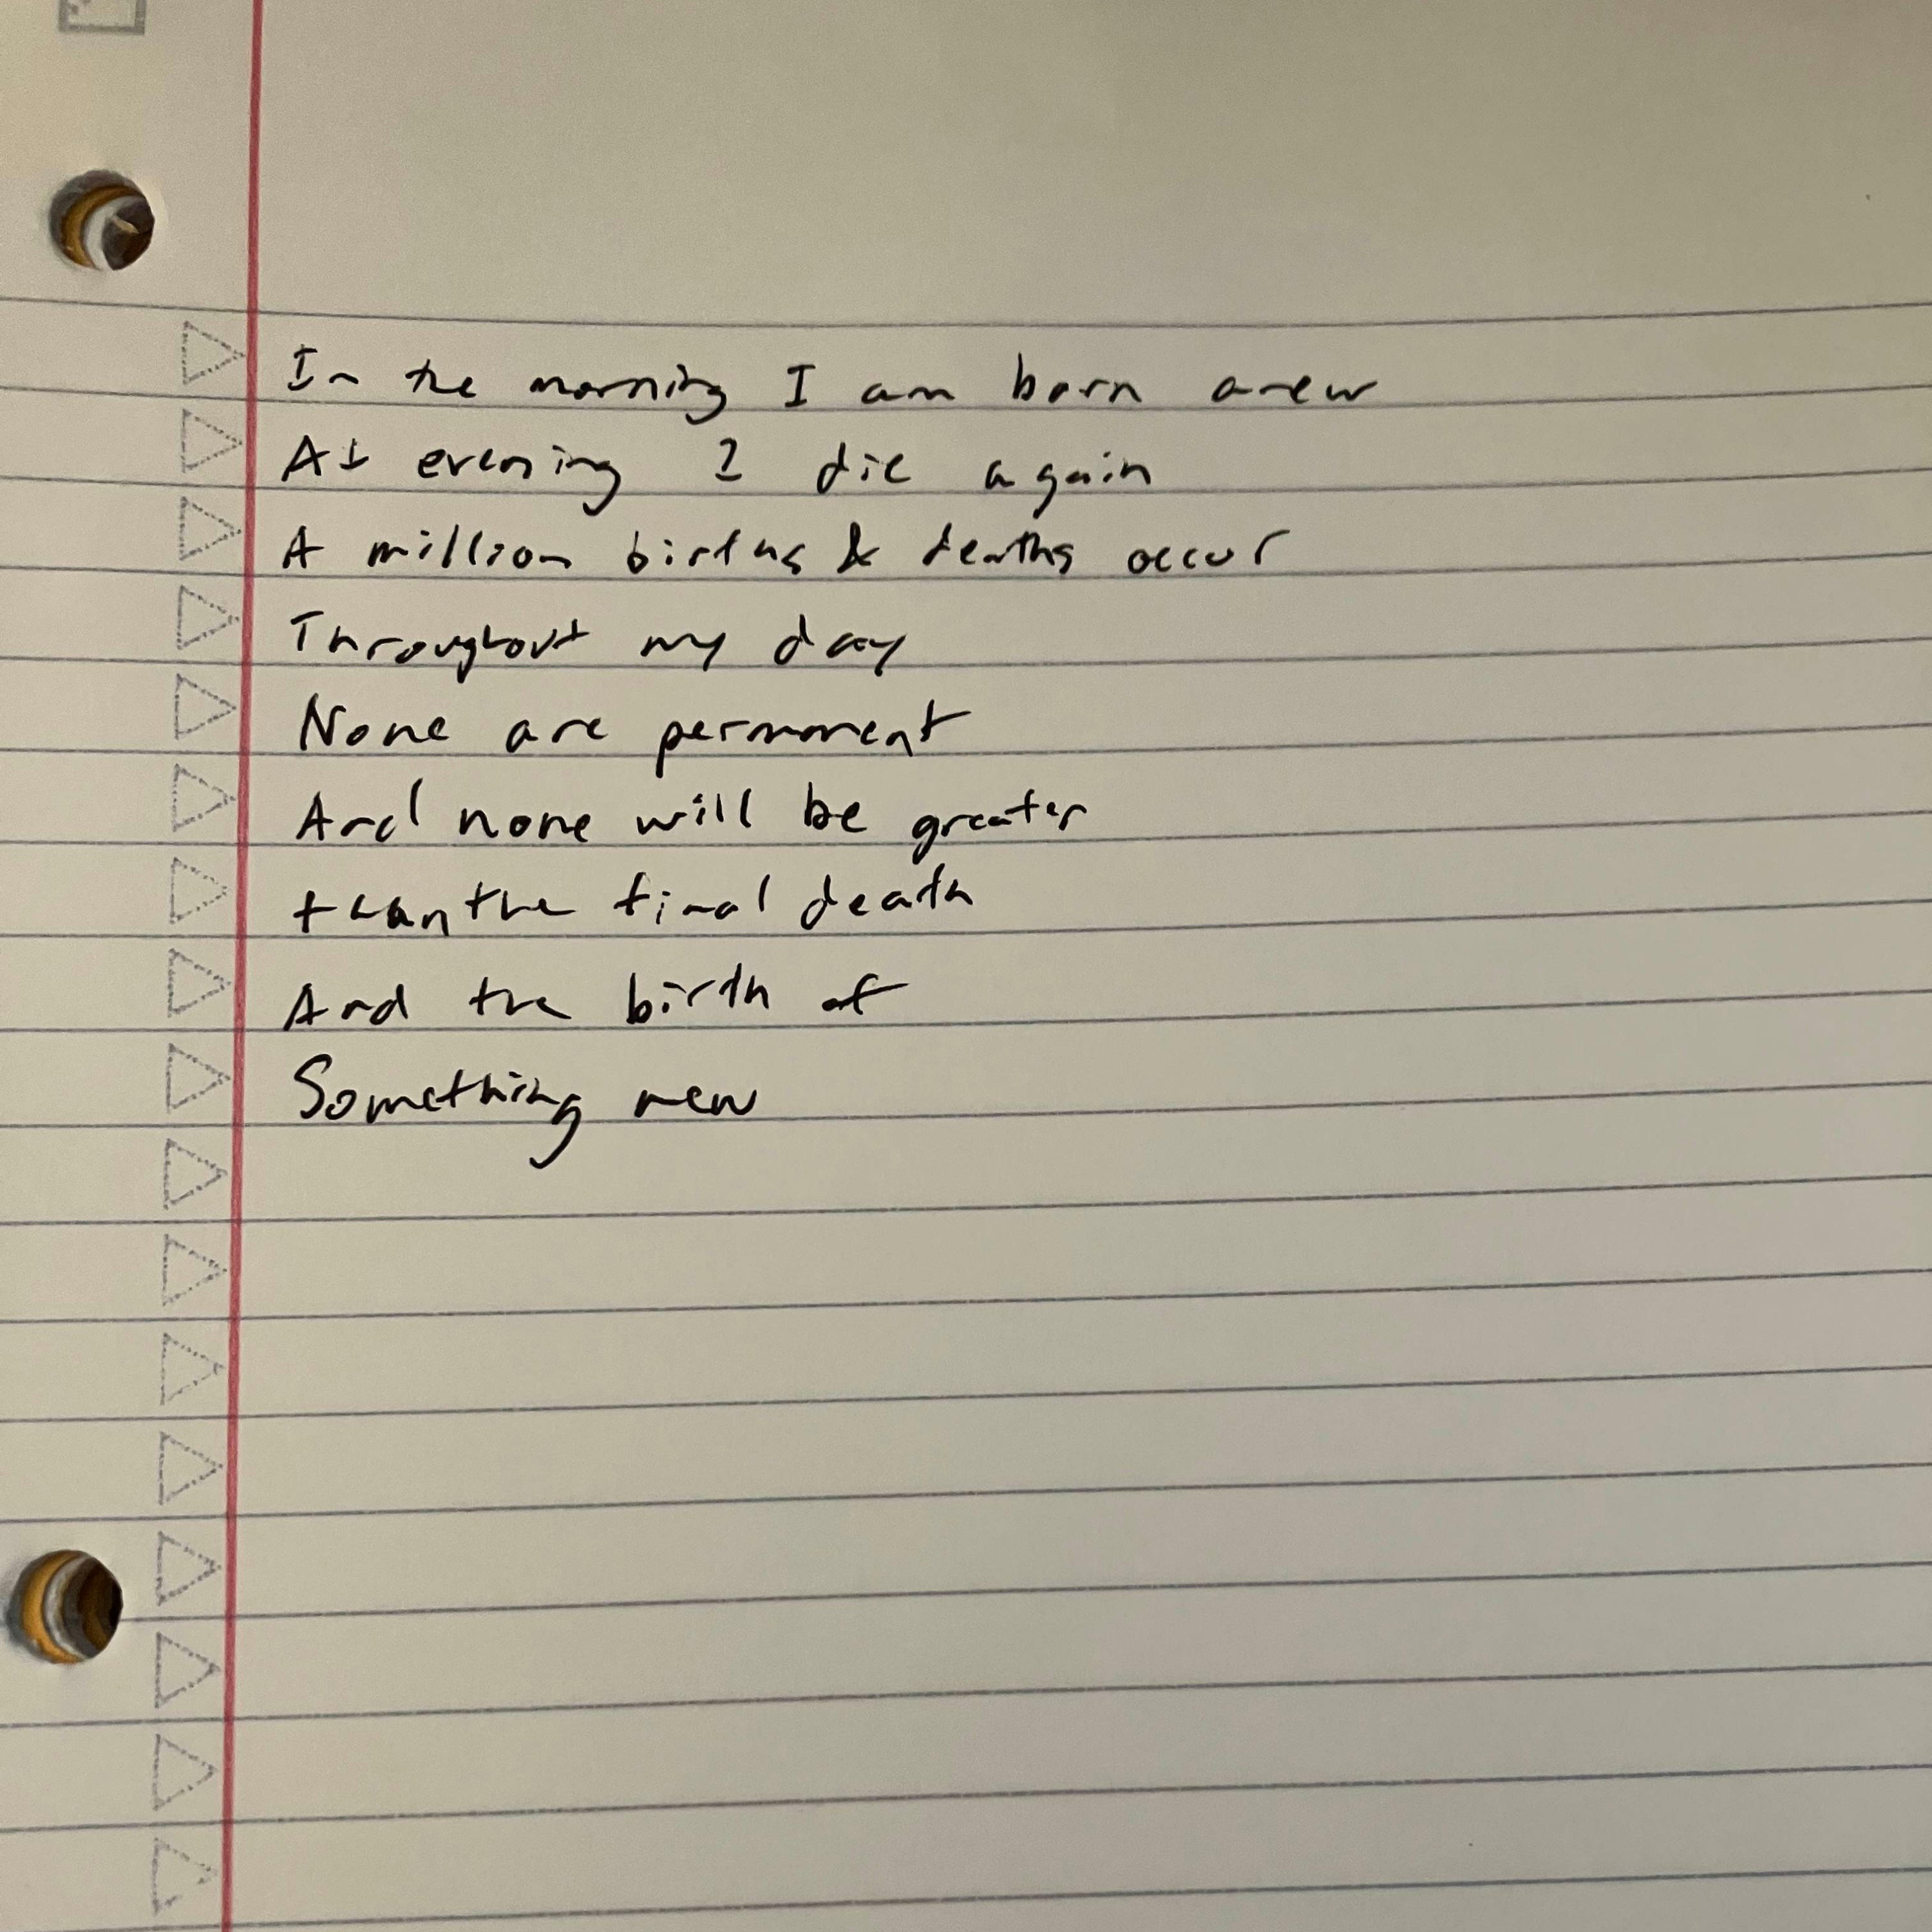 In the morning I am born anew
At evening I die again
A million births & deaths occur
Throughout my day
None are permanent
And none will be greater
than the final death
And the birth of
Something new